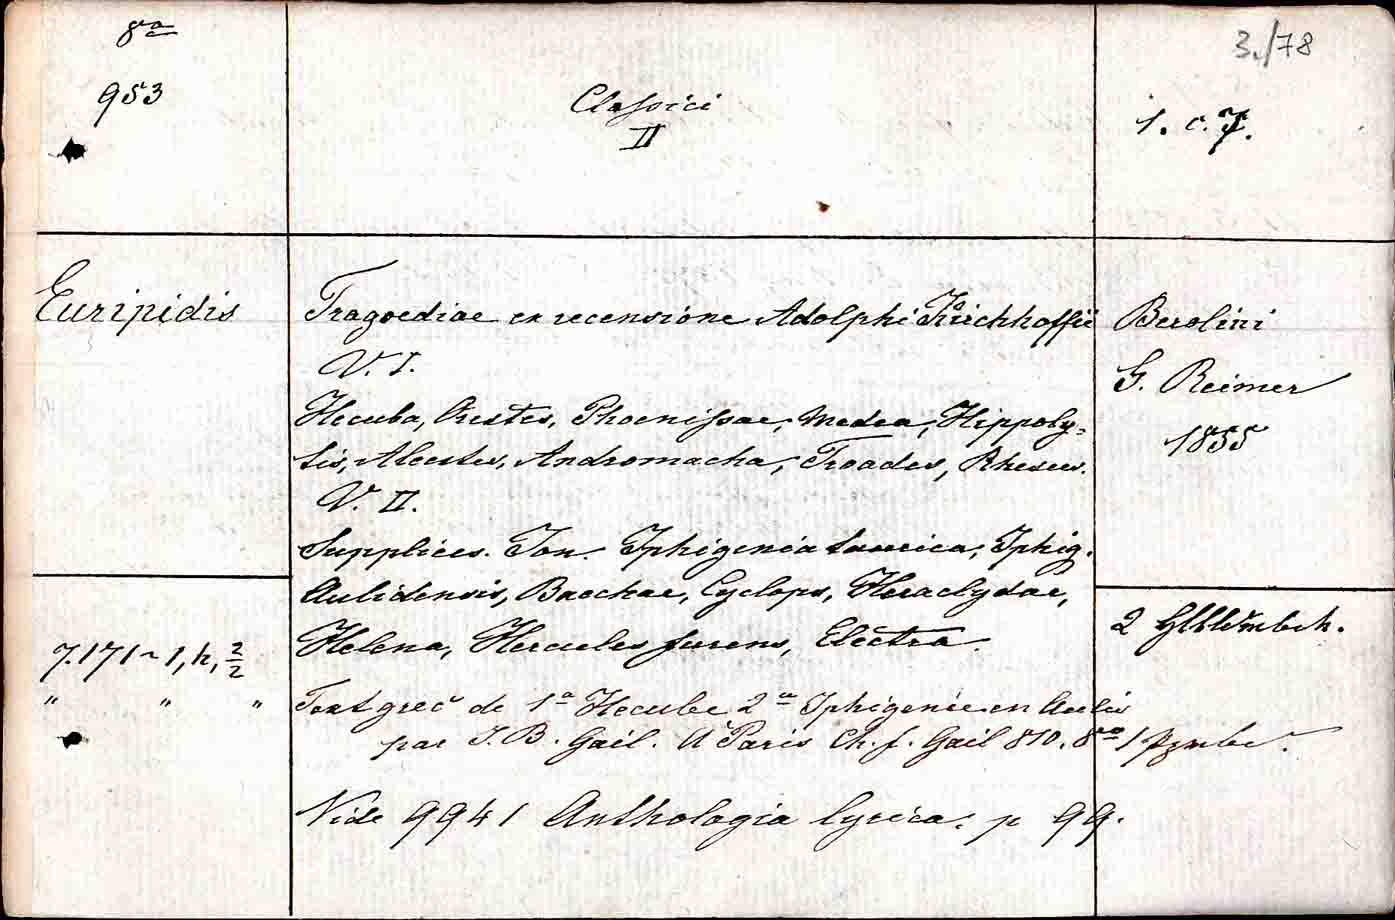 8vo
953
Classici
II
3./78
1. c. J.
Euripidis
Tragoediae ex recensione Adolphi Kirchhoffii
V. I.
Hecuba, Orestes, Phoenissae, Medea, Hippoly-
tis, Alcestes, Andromacha, Troades, Rhesus.
V. II.
Supplices. Ion. Iphigenia taurica, Iphig.
Aulidensis, Bacchae, Cyclops, Heraclydae,
Helena, Hercules furens, Electra.
Berolini
G. Reimer
1855
2
7.171~1, h, 2/2
" " "
Text grec de 1a Hecube 2a Iphigenie en Aulis
par J. B. Gail. A Paris Ch. f. Gail 810. 8vo /
Vide 9941 Anthologia lyrica. p 99.